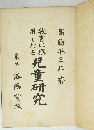 高島平三郎著
教育に應
用したる 兒童研究
東京 洛陽堂